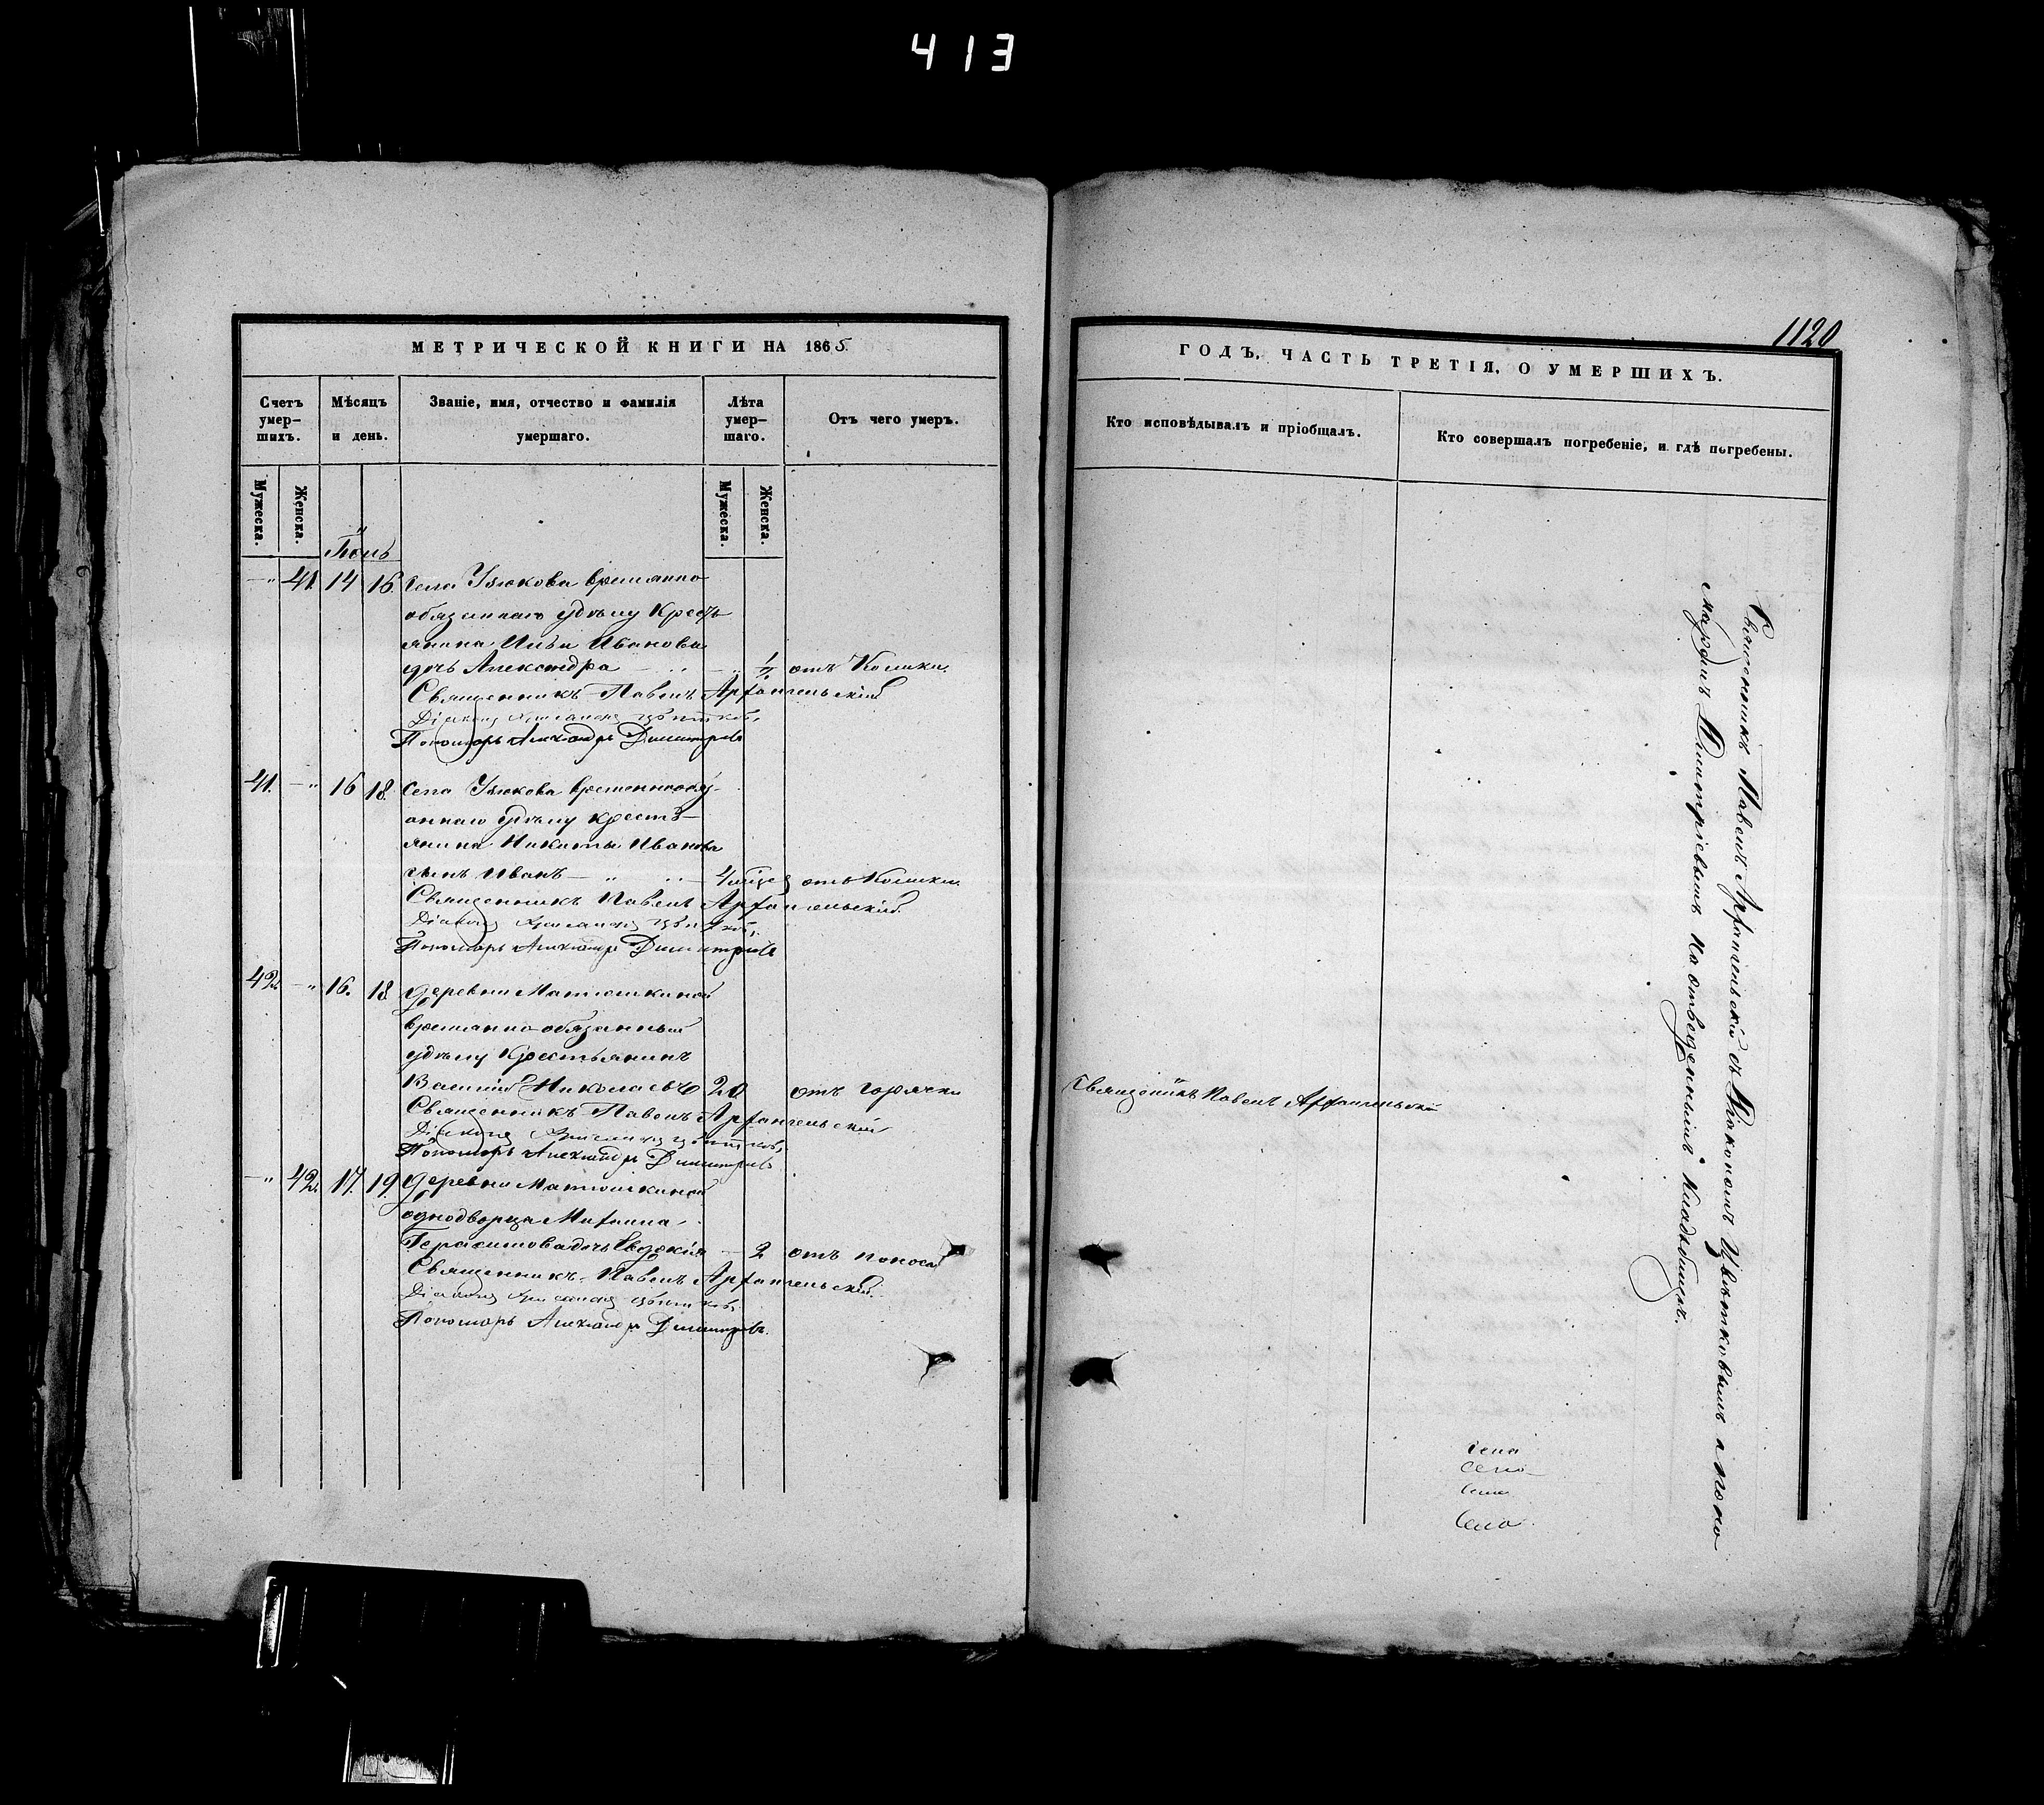 413
МЕТРИЧЕСКОЙ КНИГИ НА 1865.
Счетъ умер-шихъ.
Мѣсяцъ и день.
Званіе, имя, отчество и фамилія умершаго.
Лѣта умер-шаго.
Отъ чего умеръ.
Мужеска.
Женска.
Мужеска.
Женска.
Іюнь
—„ 41. 14 16. Села Узюкова временно
обязаннаго удѣлу Кресть
янина Ильи Иванова
дочь Александра — „ — „ 1/2 отъ Колики.
Священникъ Павелъ Архангельскій
Діаконъ Цвѣтковъ,
Пономарь Александръ Димитріевъ
41. —„ 16 18. Села Узюкова временнообяз-
аннаго удѣлу кресть-
янина Никиты Иванова
сынъ Иванъ — „ „ — отъ Колики.
Священникъ Павелъ Архангельскій.
Діаконъ Цвѣтковъ,
Пономарь Александръ Димитріевъ
42. —„ 16. 18 деревни Матюшкиной
временно-обязанный
удѣлу Крестьянинъ
Василій Николаевъ 20 отъ горячки
Священникъ Павелъ Архангельскій
Діаконъ Цвѣтковъ,
Пономарь Александръ Димитріевъ
—„ 42. 17. 19. деревни Матюшкиной
однодворца Михаила
Герасимова дочь Евдокія — 2 отъ поноса
Священникъ Павелъ Архангельскій.
Діаконъ Цвѣтковъ
Пономарь Александръ Димитріевъ.
1120
ГОДЪ, ЧАСТЬ ТРЕТІЯ, О УМЕРШИХЪ.
Кто исповѣдывалъ и пріобщалъ.
Кто совершалъ погребеніе, и гдѣ погребены.
Священникъ Павелъ Архангельскій
Священникъ Павелъ Архангельскій съ Діакономъ Цвѣтковымъ и поно
маремъ Димитріевымъ на отведенномъ кладбищѣ.
Села
Село
Села
Село